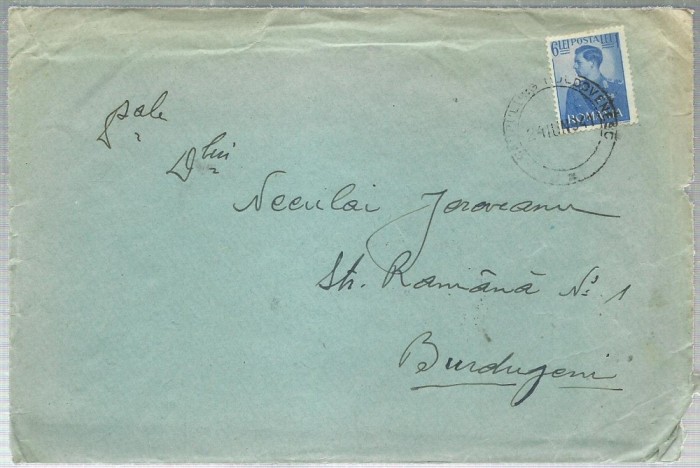 6 LEI POSTA LEI
ROMANIA
MOLDOVENESC
IUN
D lui
Neculai Joroveanu
Str. Română No. 1
Burdugeni